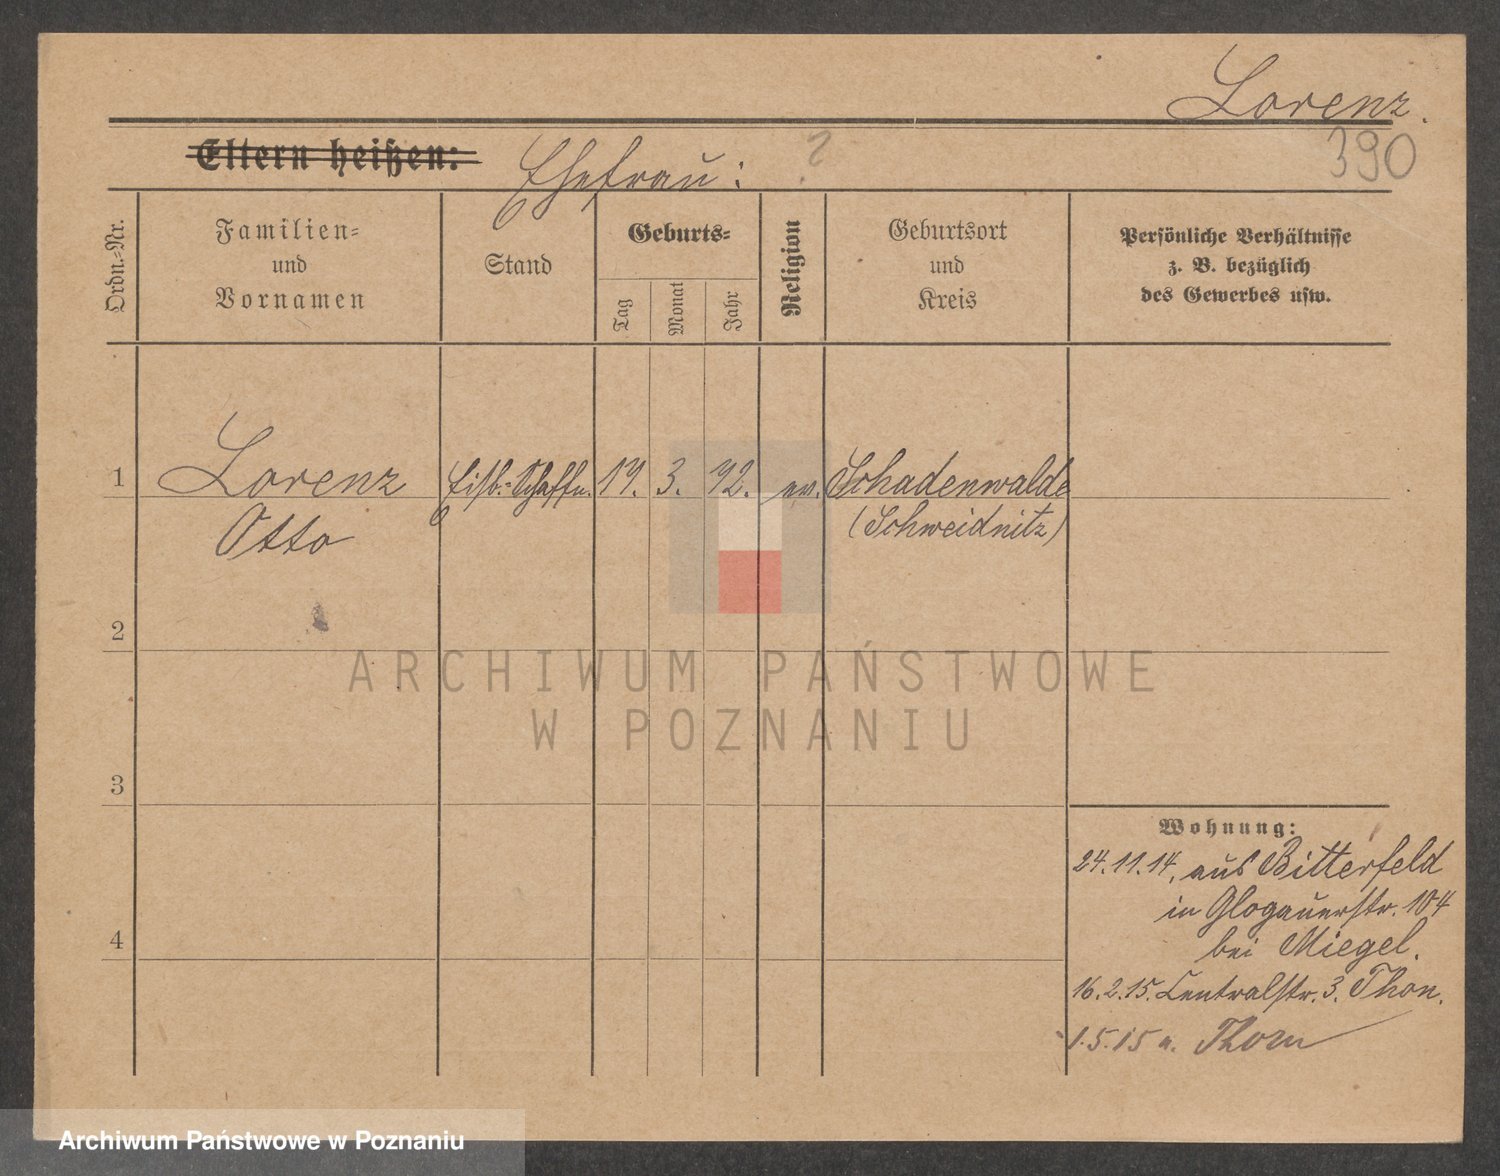 Lorenz.
390
Eltern heißen: Ehefrau: ?
Ordn.-Nr.
Familien-
und
Vornamen
Stand
Geburts-
Tag
Monat
Jahr
Religion
Geburtsort
und
Kreis
Persönliche Verhältnisse
z. B. bezüglich
des Gewerbes usw.
1 Lorenz Eisb.-Schaffn. 17. 3. 92. ev. Schadenwalde
Otto (Schweidnitz)
2
ARCHIWUM PAŃSTWOWE
W POZNANIU
3
Wohnung:
24.11.14. aus Bitterfeld
in Glogauerstr. 104
bei Miegel.
4
16.2.15. Centralstr. 3. Thon.
1.5.15 n. Thorn
Archiwum Państwowe w Poznaniu